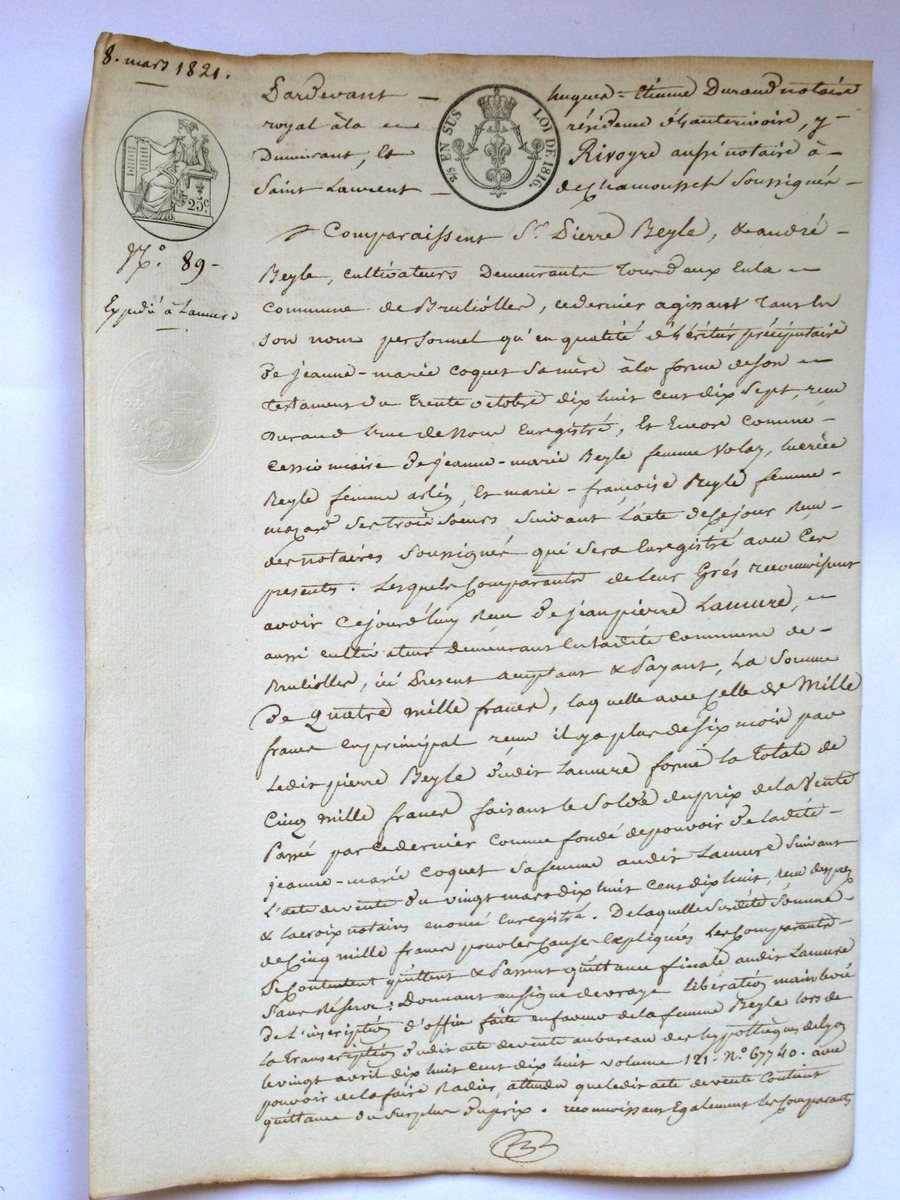 8. mars 1821.
Pardevant — hugues = Etienne Durand notaire
royal à la résidence d'hauterivoire, y
Demeurant, Et Rivoyre aussi notaire à
Saint Laurent — de Chamousset Soussignés —
25 EN SUS LOI DE 1816.
25c
N.° 89 -
Expédié à Lamure
Comparaissent Sr. Pierre Beyle, & andré
Beyle, cultivateurs Demeurants Tous deux En la
commune de Brulioller, ce dernier agissant Tant En
son nom personnel qu'en qualité d'héritier préciputaire
De jeanne-marie coquet Sa mère à la forme de son
Testament du trente octobre dix huit cent dix Sept, reçu
Durand l'un de Nous Enregistré, Et Encore comme
Cessionnaire De jeanne-marie Beyle femme Volay, lucrèce
Beyle femme Et marie-françoise Beyle femme
Ses trois Soeurs Suivant l'acte de Ce jour Reçu
des notaires Soussignés qui Sera Enregistré avec Ces
presentes. Lesquels Comparants de leur Grés reconnoissent
avoir Cejourd'huy Reçu De jean pierre Lamure,
aussi cultivateur demeurant En ladite commune de
Brulioller, ici Present acceptant & Payant, La Somme
De Quatre mille francs, laquelle avec Celle de Mille
francs en principal reçue il y a plus de Six mois par
Ledit pierre Beyle dudit Lamure forme la Totale de
Cinq mille francs faisant le Solde du prix de la Vente
Passée par ce dernier comme fondé de pouvoir De ladite
jeanne-marie coquet Sa femme audit Lamure Suivant
L'acte de vente du vingt mars dix huit cent dix huit, reçu
& lacroix notaires enoncé Enregistré. De laquelle Susdite Somme
de Cinq mille francs pour les Causes Expliquées Les Comparants
Se Contentent quittent & Passent quittance finale audit Lamure
Sans Réserve; Donnant en Signe de vraye libération mainlevée
De L'inscription d'office faite en faveur de la femme Beyle lors de
la Transcription dudit acte de vente au bureau des hypothèques de Lyon
le vingt avril dix huit cent dix huit volume 121. N.° 67740. avec
pouvoir de la faire Radier, attendu que ledit acte de vente Contient
quittance du Surplus du prix. reconnoissans Egalement les Comparants